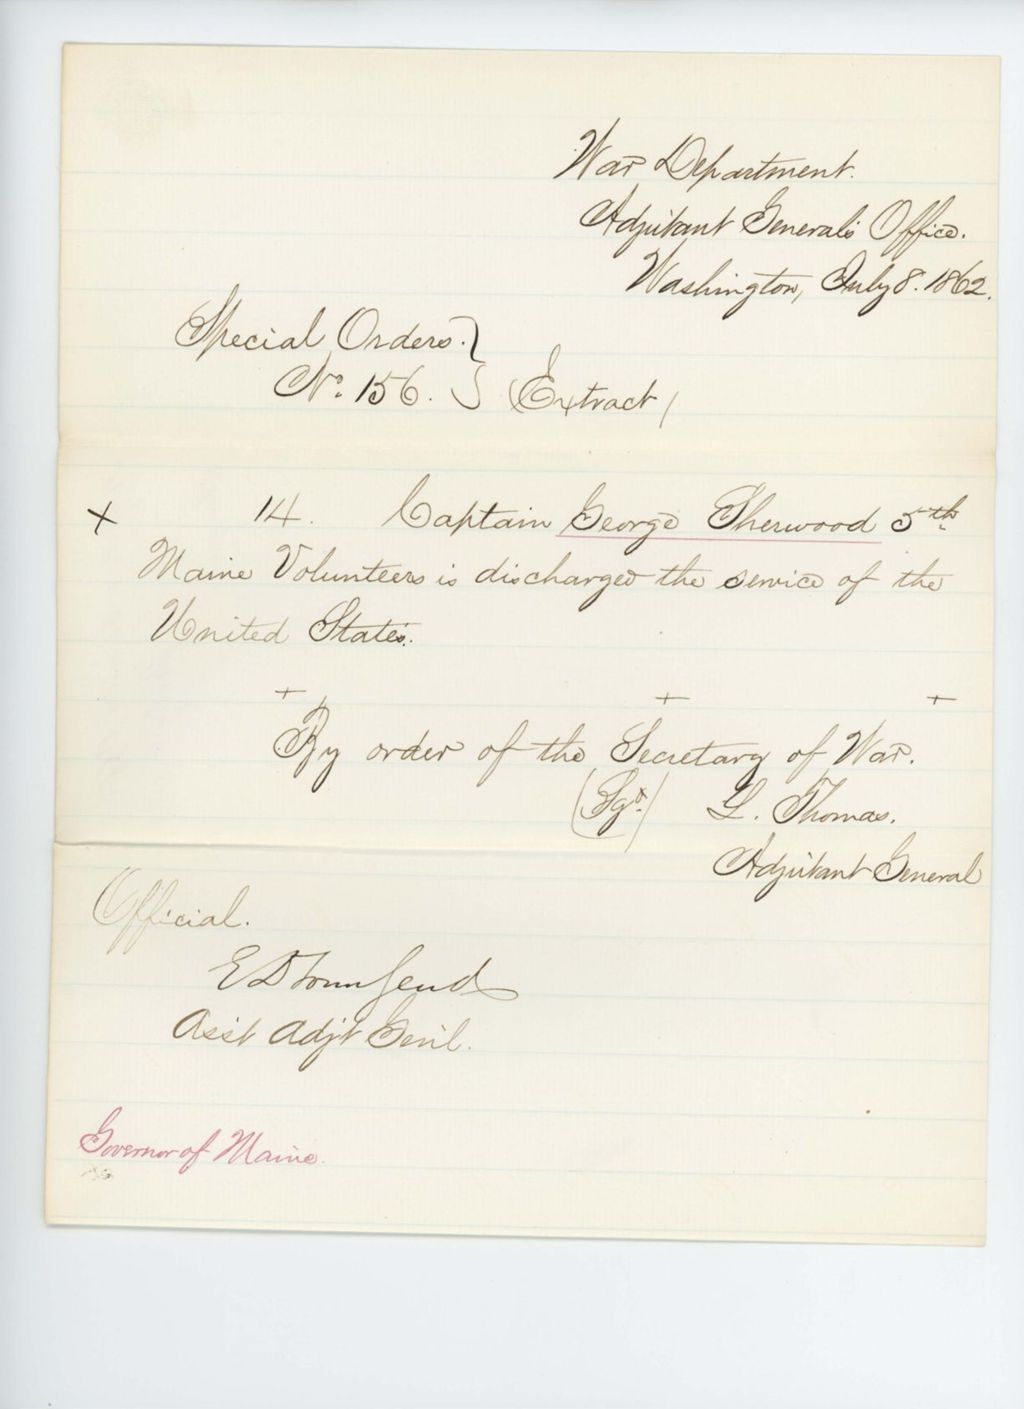 War Department.
Adjutant General's Office.
Washington, July 8. 1862.
Special Orders. }
No. 156. } (Extract)
+ 14. Captain George Sherwood 5th
Maine Volunteers is discharged the service of the
United States.
+ + +
By order of the Secretary of War.
(Sgd.) L. Thomas.
Adjutant General
Official.
E D Townsend
Asst Adjt Genl.
Governor of Maine.